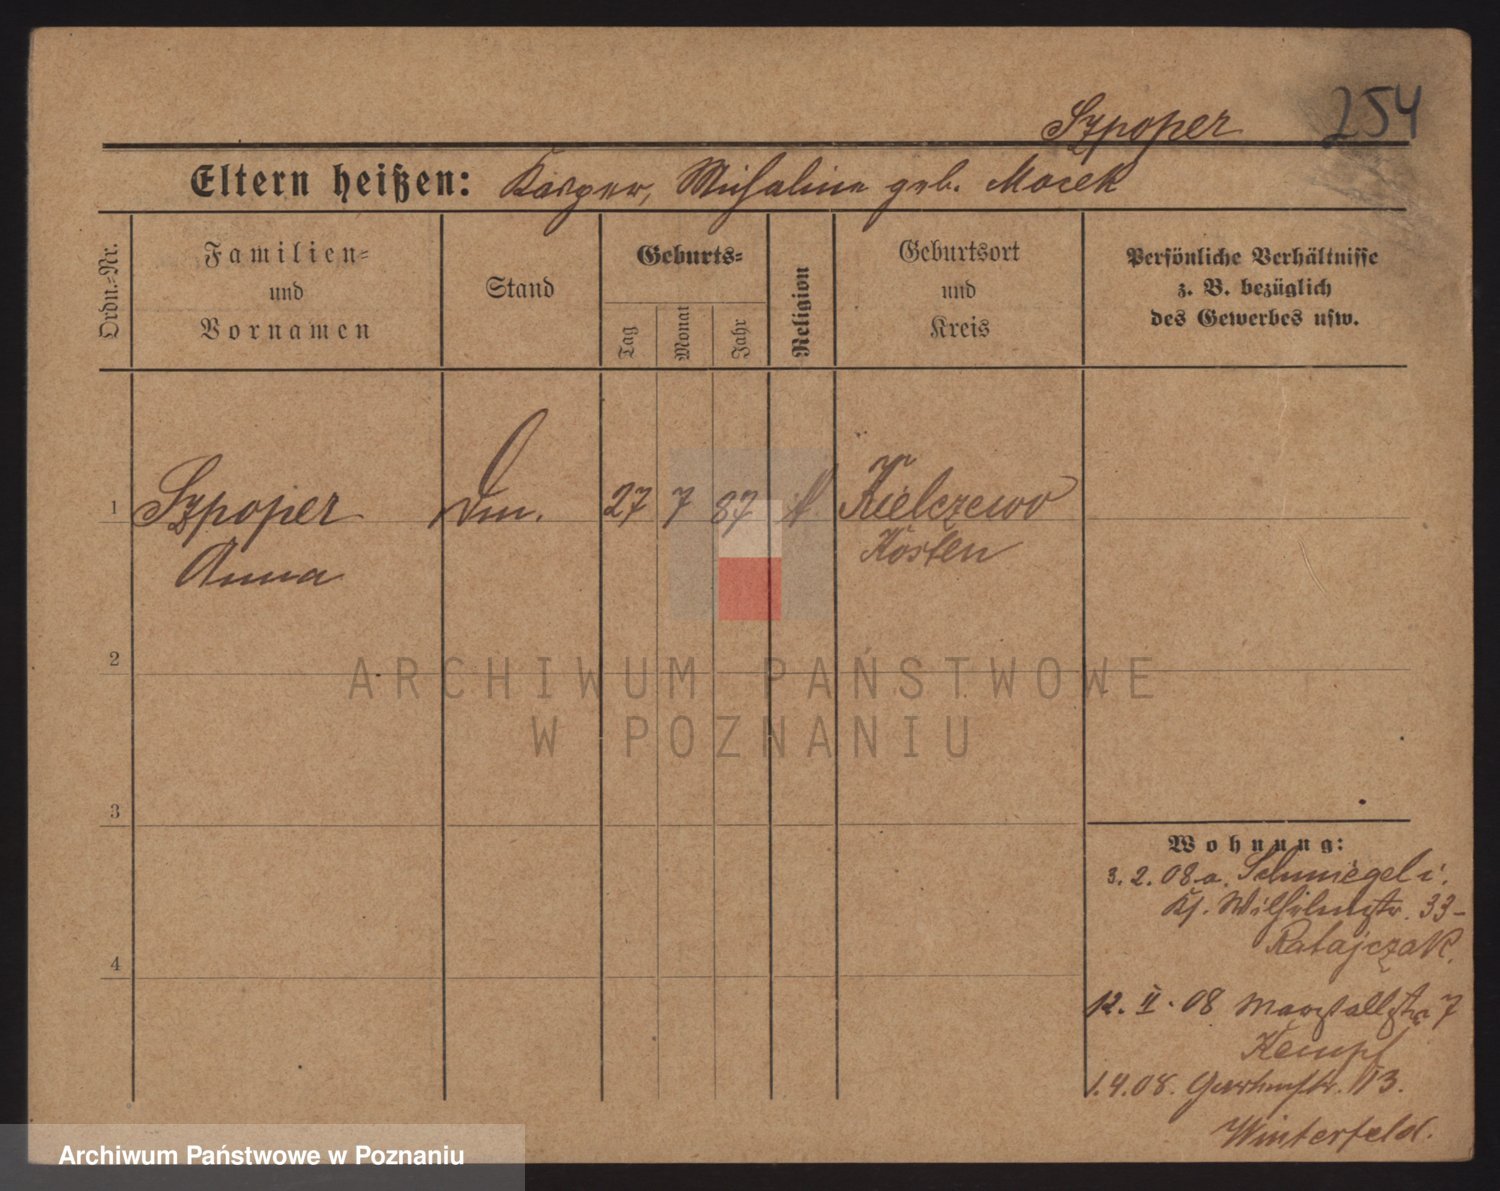 Szpoper 254
Eltern heißen: Kasper, Michaline geb. Mocek
Ordn.-Nr.
Familien-
und
Vornamen
Stand
Geburts-
Tag
Monat
Jahr
Religion
Geburtsort
und
Kreis
Persönliche Verhältnisse
z. B. bezüglich
des Gewerbes usw.
1 Szpoper 27 7 87 k. Kielczewo
Anna Kosten
2
3
4
Wohnung:
3. 2. 08 a. Schmiegel i.
Kj. Wilhelmstr. 33-
Ratajczak.
12. II. 08 Marstallstr. 7
Kempf
1.4.08. Gartenstr. 13.
Winterfeld.
ARCHIWUM PAŃSTWOWE
W POZNANIU
Archiwum Państwowe w Poznaniu